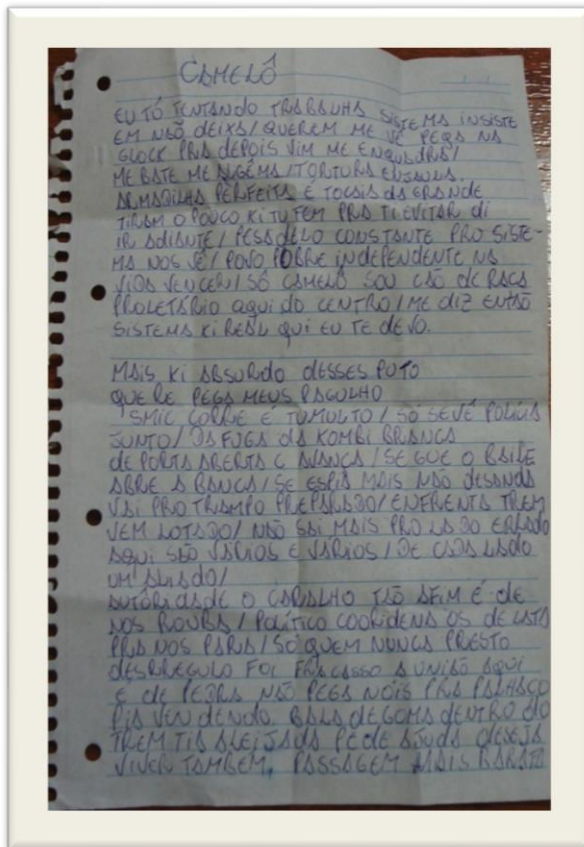 CAMELÔ
EU TÔ TENTANDO TRABALHA SISTEMA INSISTE
EM NÃO DEIXA/QUEREM ME VÊ PEGA NA
GLOCK PRA DEPOIS VIM ME ENQUADRA/
ME BATE ME ALGÉMA/TORTURA
ARMADILHA PERFEITA É TOCAIA DA GRANDE
TIRAM O POUCO KI TU TEM PRA TI EVITAR DI
IR ADIANTE/PESADELO CONSTANTE PRO SISTE-
MA NOS VÊ/POVO POBRE INDEPENDENTE NA
VIDA VENCER/SÔ CAMELÔ SOU CÃO DE RAÇA
PROLETÁRIO AQUI DO CENTRO/ME DIZ ENTÃO
SISTEMA KI REAL QUI EU TE DEVO.
MAIS KI ABSURDO DESSES PUTO
QUERE PEGA MEUS BAGULHO
SMIC CORRE É TUMULTO/SÓ SE VÊ POLICIA
JUNTO/DA FUGA DA KOMBI BRANCA
DE PORTA ABERTA C AVANCA/SEGUE O BAILE
ABRE A BANCA/SE ESPIA MAIS NÃO DESANDA
VAI PRO TRAMPO PREPARADO/ENFRENTA TREM
VEM LOTADO/NÃO SAI MAIS PRO LADO ERRADO
AQUI SÃO VÁRIOS E VÁRIOS/DE CADA LADO
UM ALIADO/
AUTÓRIDADE O CARALHO TÃO AFIM É DE
NOS ROUBA/POLÍTICO COORIDENA OS DE LATA
PRA NOS PARIA/SÓ QUEM NUNCA PRESTO
DESRREGULO FOI FRACASSO A UNIÃO AQUI
É DE PEDRA NÃO PEGA NÓIS PRA PALHAÇO
PIA VENDENDO BALA DE GOMA DENTRO DO
TREM TIA ALEIJADA PEDE AJUDA DESEJA
VIVER TAMBEM, PASSAGEM MAIS BARATA